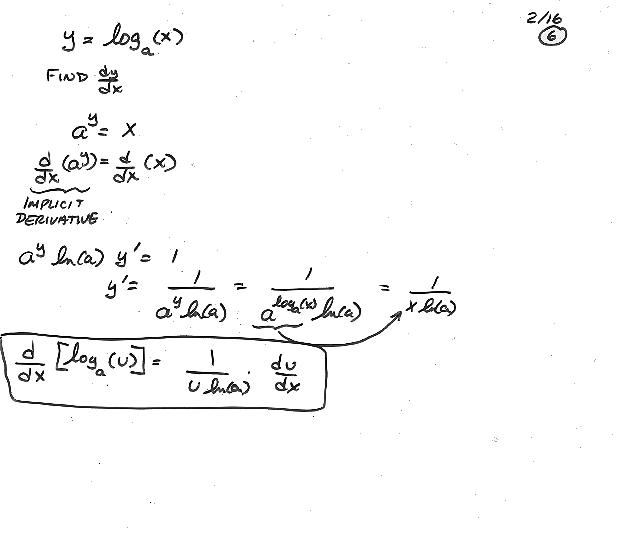 2/16
6
y = log_a(x)
FIND dy/dx
a^y = x
d/dx (a^y) = d/dx (x)
IMPLICIT
DERIVATIVE
a^y ln(a) y' = 1
y' = 1/(a^y ln(a)) = 1/(a^(log_a(x)) ln(a)) = 1/(x ln(a))
d/dx [log_a(u)] = 1/(u ln(a)) · du/dx